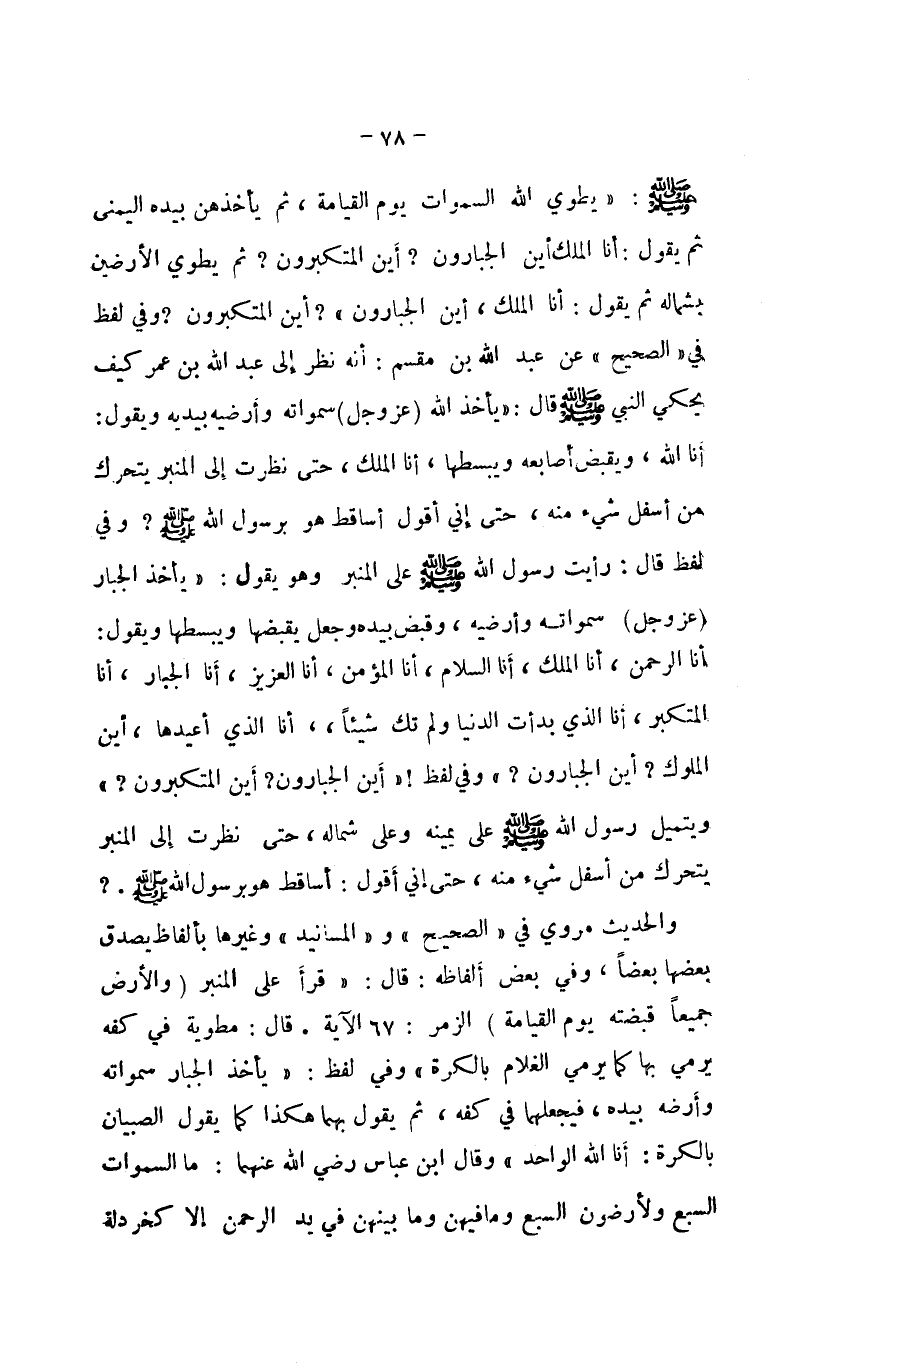 - ٧٨ -
ﷺ : « يطوي الله السموات يوم القيامة ، ثم يأخذهن بيده اليمنى
ثم يقول : أنا الملك أين الجبارون ؟ أين المتكبرون ؟ ثم يطوي الأرضين
بشماله ثم يقول : أنا الملك ، أين الجبارون » ؟ أين المتكبرون ؟ وفي لفظ
في « الصحيح » عن عبد الله بن مقسم : أنه نظر إلى عبد الله بن عمر كيف
يحكي النبي ﷺ قال : « يأخذ الله ( عز وجل ) سمواته وأرضيه بيديه ويقول :
أنا الله ، ويقبض أصابعه ويبسطها ، أنا الملك ، حتى نظرت إلى المنبر يتحرك
من أسفل شيء منه ، حتى إني أقول أساقط هو برسول الله ﷺ ؟ وفي
لفظ قال : رأيت رسول الله ﷺ على المنبر وهو يقول : « يأخذ الجبار
( عز وجل ) سمواته وأرضيه ، وقبض بيده وجعل يقبضها ويبسطها ويقول :
أنا الرحمن ، أنا الملك ، أنا السلام ، أنا المؤمن ، أنا العزيز ، أنا الجبار ، أنا
المتكبر ، أنا الذي بدأت الدنيا ولم تك شيئاً ، ، أنا الذي أعيدها ، أين
الملوك ؟ أين الجبارون ؟ » وفي لفظ !« أين الجبارون ؟ أين المتكبرون ؟ »
ويتميل رسول الله ﷺ على يمينه وعلى شماله ، حتى نظرت إلى المنبر
يتحرك من أسفل شيء منه ، حتى إني أقول : أساقط هو برسول الله ﷺ . ؟
والحديث مروي في « الصحيح » و « المسانيد » وغيرها بألفاظ يصدق
بعضها بعضاً ، وفي بعض ألفاظه : قال : « قرأ على المنبر ( والأرض
جميعاً قبضته يوم القيامة ) الزمر : ٦٧ الآية . قال : مطوية في كفه
يرمي بها كما يرمي الغلام بالكرة » وفي لفظ : « يأخذ الجبار سمواته
وأرضه بيده ، فيجعلها في كفه ، ثم يقول بهما هكذا كما يقول الصبيان
بالكرة : أنا الله الواحد » وقال ابن عباس رضي الله عنهما : ما السموات
السبع ولأرضون السبع ومافيهن وما بينهن في يد الرحمن إلا كخردلة